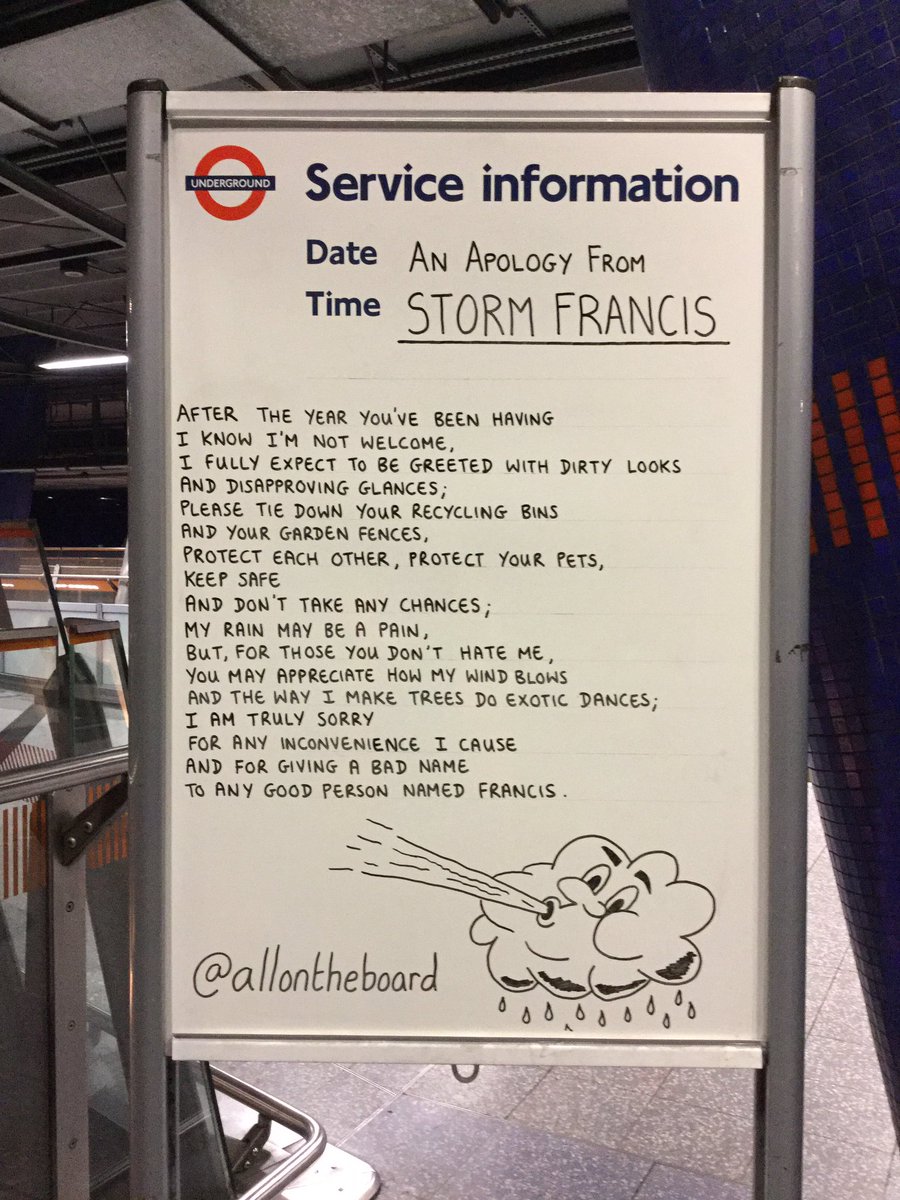 UNDERGROUND
Service information
Date AN APOLOGY FROM
Time STORM FRANCIS
AFTER THE YEAR YOU'VE BEEN HAVING
I KNOW I'M NOT WELCOME,
I FULLY EXPECT TO BE GREETED WITH DIRTY LOOKS
AND DISAPPROVING GLANCES;
PLEASE TIE DOWN YOUR RECYCLING BINS
AND YOUR GARDEN FENCES,
PROTECT EACH OTHER, PROTECT YOUR PETS,
KEEP SAFE
AND DON'T TAKE ANY CHANCES;
MY RAIN MAY BE A PAIN,
BUT, FOR THOSE YOU DON'T HATE ME,
YOU MAY APPRECIATE HOW MY WIND BLOWS
AND THE WAY I MAKE TREES DO EXOTIC DANCES;
I AM TRULY SORRY
FOR ANY INCONVENIENCE I CAUSE
AND FOR GIVING A BAD NAME
TO ANY GOOD PERSON NAMED FRANCIS.
@allontheboard